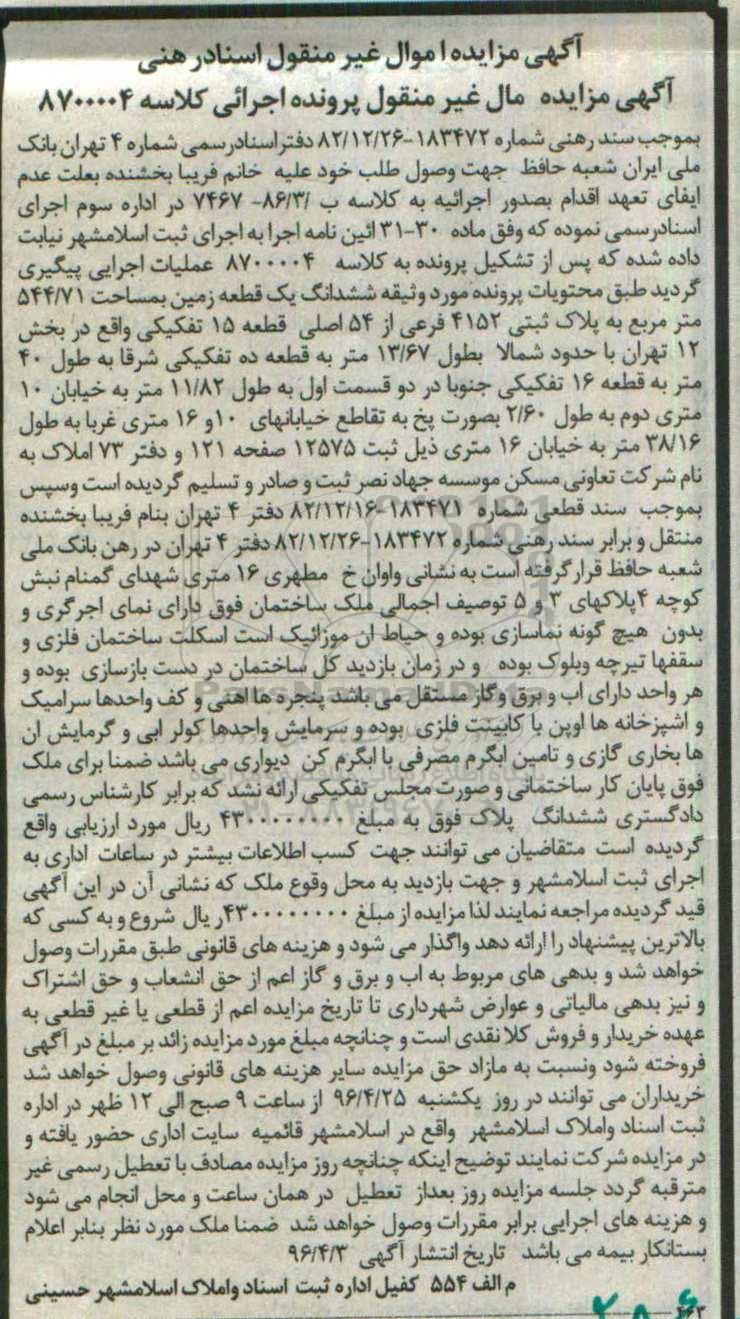 آگهی مزایده اموال غیر منقول اسنادر هنی
آگهی مزایده مال غیر منقول پرونده اجرائی کلاسه ۸۷۰۰۰۰۴
بموجب سند رهنی شماره ۱۸۳۴۷۲-۸۲/۱۲/۲۶ دفتر اسنادرسمی شماره ۴ تهران بانک
ملی ایران شعبه حافظ جهت وصول طلب خود علیه خانم فریبا بخشنده بعلت عدم
ایفای تعهد اقدام بصدور اجرائیه به کلاسه ب /۸۶/۳- ۷۴۶۷ در اداره سوم اجرای
اسنادرسمی نموده که وفق ماده ۳۰-۳۱ ائین نامه اجرا به اجرای ثبت اسلامشهر نیابت
داده شده که پس از تشکیل پرونده به کلاسه ۸۷۰۰۰۰۴ عملیات اجرایی پیگیری
گردید طبق محتویات پرونده مورد وثیقه ششدانگ یک قطعه زمین بمساحت ۵۴۴/۷۱
متر مربع به پلاک ثبتی ۴۱۵۲ فرعی از ۵۴ اصلی قطعه ۱۵ تفکیکی واقع در بخش
۱۲ تهران با حدود شمالا بطول ۱۳/۶۷ متر به قطعه ده تفکیکی شرقا به طول ۴۰
متر به قطعه ۱۶ تفکیکی جنوبا در دو قسمت اول به طول ۱۱/۸۲ متر به خیابان ۱۰
متری دوم به طول ۲/۶۰ بصورت پخ به تقاطع خیابانهای ۱۰و ۱۶ متری غربا به طول
۳۸/۱۶ متر به خیابان ۱۶ متری ذیل ثبت ۱۲۵۷۵ صفحه ۱۲۱ و دفتر ۷۳ املاک به
نام شرکت تعاونی مسکن موسسه جهاد نصر ثبت و صادر و تسلیم گردیده است وسپس
بموجب سند قطعی شماره ۱۸۳۴۷۱-۸۲/۱۲/۱۶ دفتر ۴ تهران بنام فریبا بخشنده
منتقل و برابر سند رهنی شماره ۱۸۳۴۷۲-۸۲/۱۲/۲۶ دفتر ۴ تهران در رهن بانک ملی
شعبه حافظ قرار گرفته است به نشانی واوان خ مطهری ۱۶ متری شهدای گمنام نبش
کوچه ۴پلاکهای ۳ و ۵ توصیف اجمالی ملک ساختمان فوق دارای نمای اجرگری و
بدون هیچ گونه نماسازی بوده و حیاط ان موزائیک است اسکلت ساختمان فلزی و
سقفها تیرچه وبلوک بوده و در زمان بازدید کل ساختمان در دست بازسازی بوده و
هر واحد دارای اب و برق وگاز مستقل می باشد پنجره ها اهنی و کف واحدها سرامیک
و اشپزخانه ها اوپن با کابینت فلزی بوده و سرمایش واحدها کولر ابی و گرمایش ان
ها بخاری گازی و تامین ابگرم مصرفی با ابگرم کن دیواری می باشد ضمنا برای ملک
فوق پایان کار ساختمانی و صورت مجلس تفکیکی ارائه نشد که برابر کارشناس رسمی
دادگستری ششدانگ پلاک فوق به مبلغ ۴۳۰۰۰۰۰۰۰۰۰ ریال مورد ارزیابی واقع
گردیده است متقاضیان می توانند جهت کسب اطلاعات بیشتر در ساعات اداری به
اجرای ثبت اسلامشهر و جهت بازدید به محل وقوع ملک که نشانی آن در این آگهی
قید گردیده مراجعه نمایند لذا مزایده از مبلغ ۴۳۰۰۰۰۰۰۰۰۰ریال شروع و به کسی که
بالاترین پیشنهاد را ارائه دهد واگذار می شود و هزینه های قانونی طبق مقررات وصول
خواهد شد و بدهی های مربوط به اب و برق و گاز اعم از حق انشعاب و حق اشتراک
و نیز بدهی مالیاتی و عوارض شهرداری تا تاریخ مزایده اعم از قطعی یا غیر قطعی به
عهده خریدار و فروش کلا نقدی است و چنانچه مبلغ مورد مزایده زائد بر مبلغ در آگهی
فروخته شود ونسبت به مازاد حق مزایده سایر هزینه های قانونی وصول خواهد شد
خریداران می توانند در روز یکشنبه ۹۶/۴/۲۵ از ساعت ۹ صبح الی ۱۲ ظهر در اداره
ثبت اسناد واملاک اسلامشهر واقع در اسلامشهر قائمیه سایت اداری حضور یافته و
در مزایده شرکت نمایند توضیح اینکه چنانچه روز مزایده مصادف با تعطیل رسمی غیر
مترقبه گردد جلسه مزایده روز بعداز تعطیل در همان ساعت و محل انجام می شود
و هزینه های اجرایی برابر مقررات وصول خواهد شد ضمنا ملک مورد نظر بنابر اعلام
بستانکار بیمه می باشد تاریخ انتشار آگهی ۹۶/۴/۳
م الف ۵۵۴ کفیل اداره ثبت اسناد واملاک اسلامشهر حسینی
۴۶۳